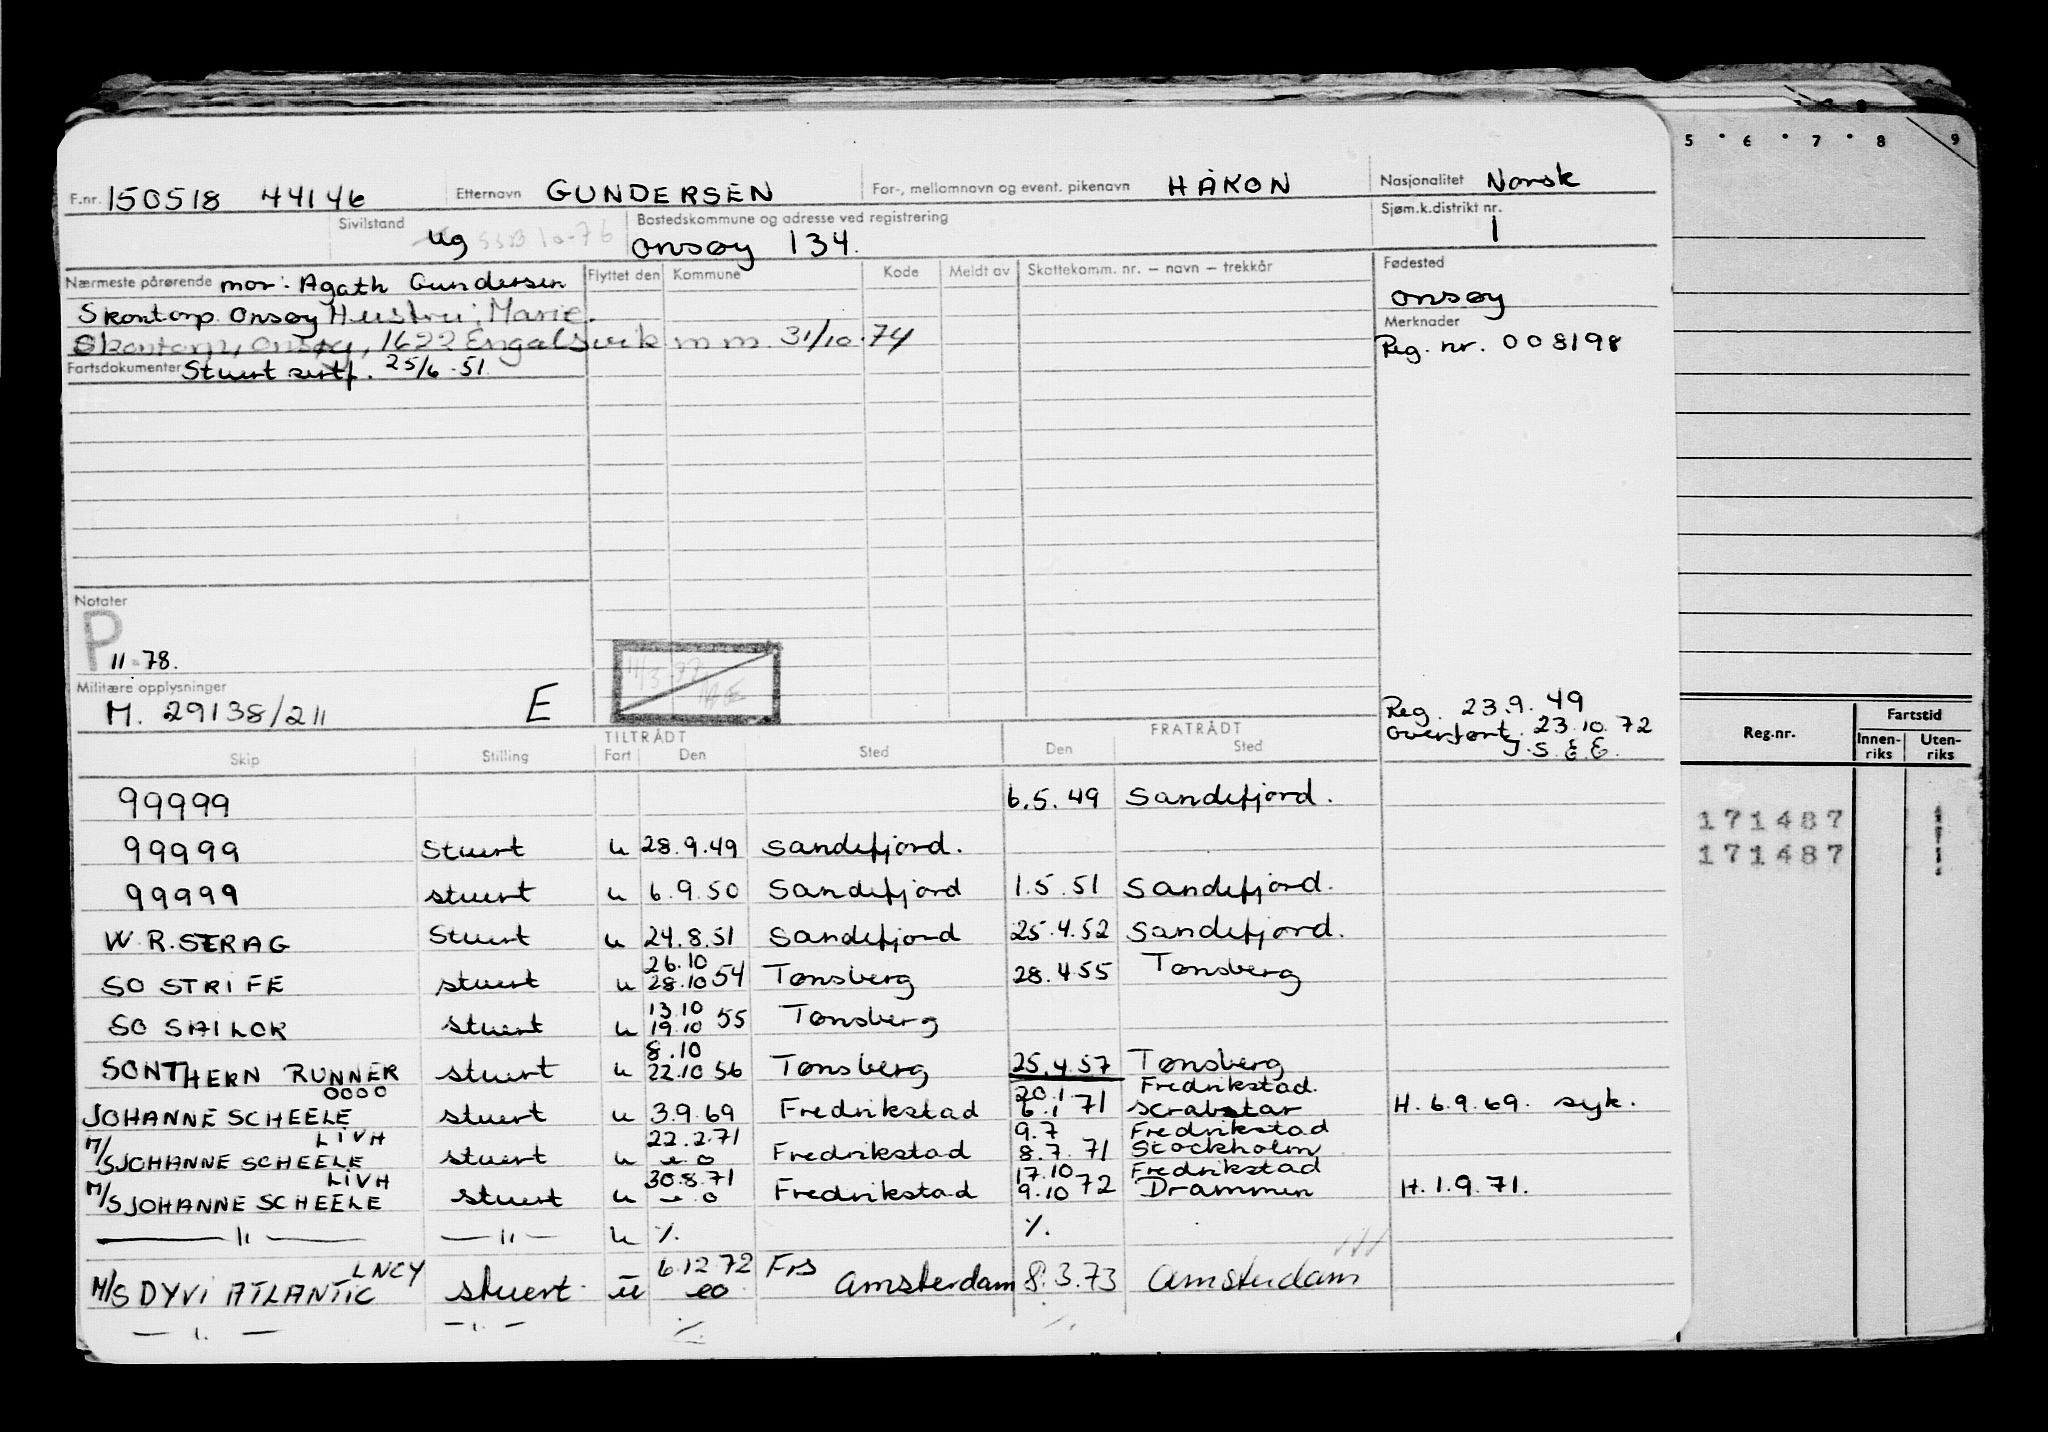 5 · 6 · 7 · 8 9
F.nr. 150518 44146 Etternavn GUNDERSEN For-, mellomnavn og event. pikenavn HÅKON Nasjonalitet Norsk
Sivilstand ug SSB 10-76 Bostedskommune og adresse ved registrering onsøy 134. Sjøm.k.distrikt nr. 1
Nærmeste pårørende mor: Agath Gundersen Flyttet den Kommune Kode Meldt av Skattekomm. nr. – navn – trekkår Fødested
Skontorp Onsøy Hustru: Marie. onsøy
Skontorp, onsøy, 1622 Engalsvik m m. 31/10-74 Merknader
Reg. nr. 008198
Fartsdokumenter Stuert sertf. 25/6-51
Notater
P
11-78.
Militære opplysninger
M. 29138/211 E
Reg. 23.9.49
Overført. 23.10.72
J.S.E.E.
TILTRÅDT FRATRÅDT
Skip Stilling Fart Den Sted Den Sted
Reg.nr. Fartstid
Innen-riks Uten-riks
99999 6.5.49 Sandefjord.
171487 1
99999 Stuert u 28.9.49 Sandefjord.
171487 1
99999 stuert u 6.9.50 Sandefjord 1.5.51 Sandefjord.
W.R. STRAG Stuert u 24.8.51 Sandefjord 25.4.52 Sandefjord.
26.10
SO STRIFE stuert u 28.10 54 Tønsberg 28.4.55 Tønsberg
13.10
SO SAILOR stuert u 19.10 55 Tønsberg
8.10
SONTHERN RUNNER stuert u 22.10 56 Tønsberg 25.4.57 Tønsberg
0000 20.1 Fredrikstad.
JOHANNE SCHEELE stuert u 3.9.69 Fredrikstad 6.1 71 scrabstar H. 6.9.69. syk.
LIVH 22.2.71 9.7 Fredrikstad
M/S JOHANNE SCHEELE stuert u eo Fredrikstad 8.7.71 Stockholm
LIVH 30.8.71 17.10 Fredrikstad
M/S JOHANNE SCHEELE stuert u eo Fredrikstad 9.10 72 Drammen H. 1.9.71.
— " — — " — u %. %.
LNCY 6.12.72 Frs
M/S DYVI ATLANTIC stuert u eo Amsterdam 8.3.73 Amsterdam
— " — — " — %. %.